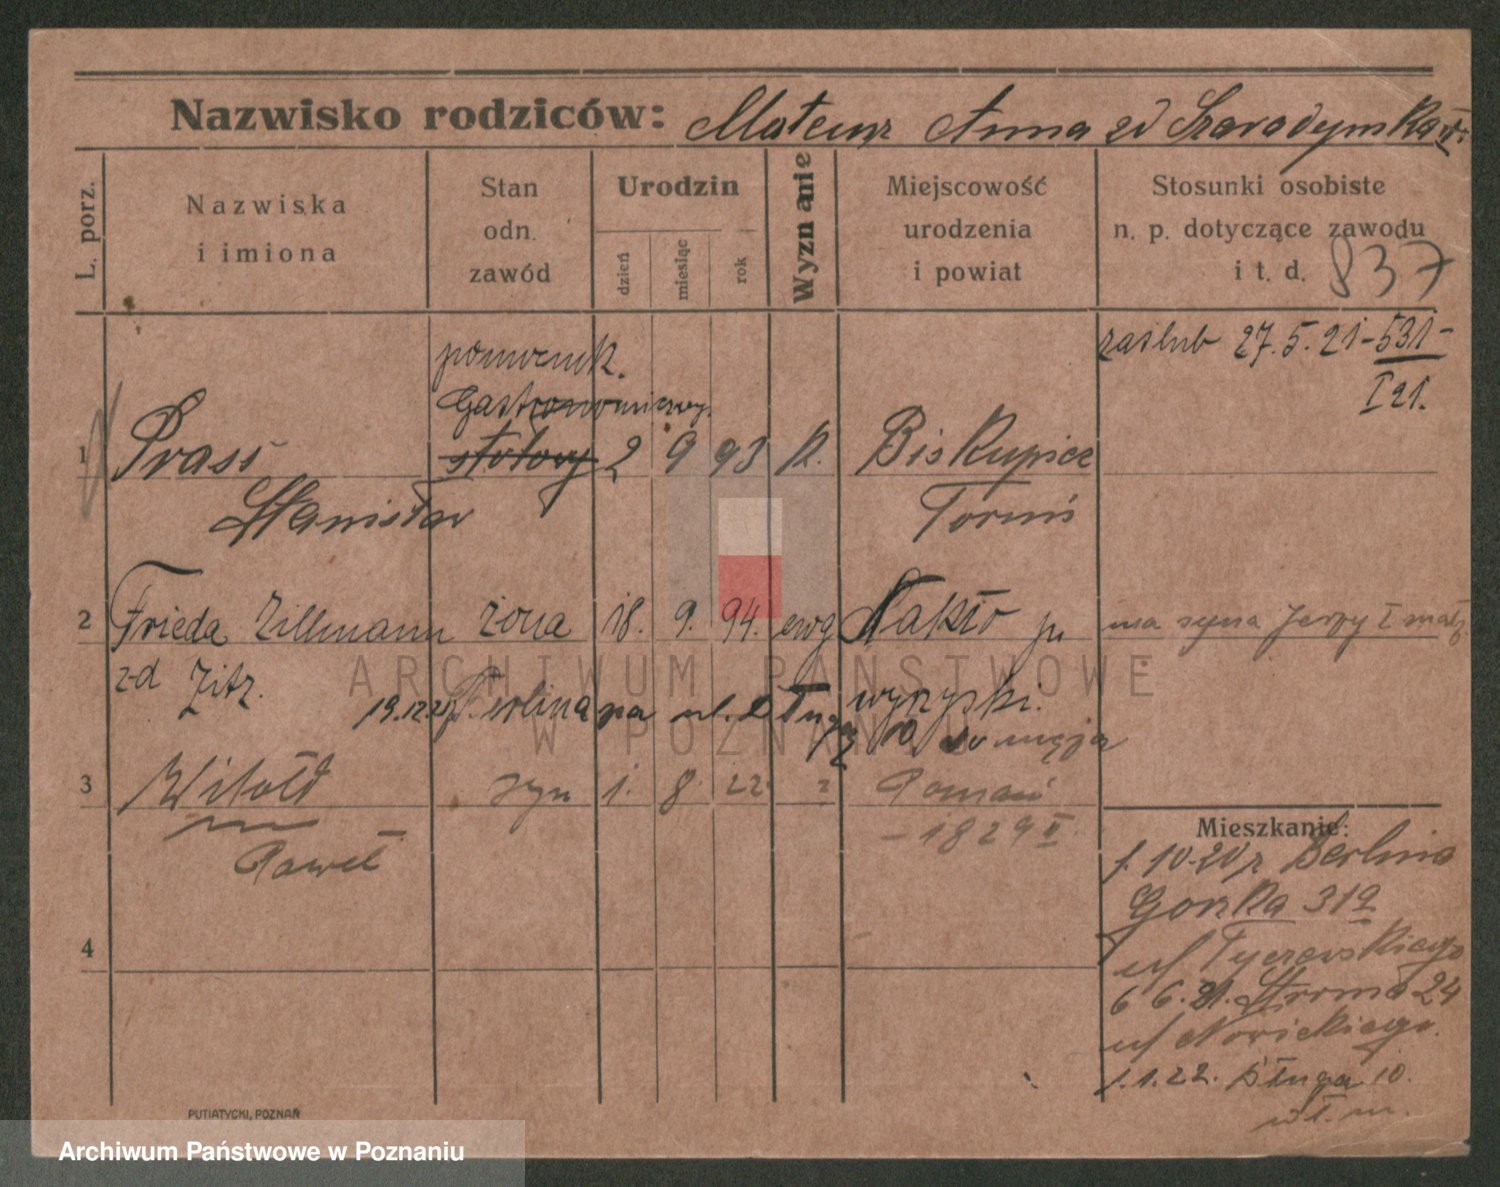 Nazwisko rodziców: Mateusz Anna zd
L. porz.
Nazwiska
i imiona
Stan
odn.
zawód
Urodzin
dzień
miesiąc
rok
Wyznanie
Miejscowość
urodzenia
i powiat
Stosunki osobiste
n. p. dotyczące zawodu
i t. d. 837
zaślub 27.5.21-531-
I 21.
pomocnik.
Gastronomiczny.
1 Prass stołowy 2 9 93 k. Biskupice
Stanisław Toruń
2 Frieda Zillmann żona 18. 9. 94. ewg Nakło
ma syna Jerzy I małż.
z-d Zitz. wyrzyski.
19.12.21 Berlina na ul. Długą 10 do męża
3 Witold syn 1. 8. 22 Poznań
Paweł - 1829 II.
4
Mieszkanie:
1.10-20 z Berlina
Gorzka 31a
6 6.21. Stroma 24
ul Nowickiego.
1.1.22. Długa 10.
wł. m.
PUTIATYCKI, POZNAŃ
ARCHIWUM PAŃSTWOWE
W POZNANIU
Archiwum Państwowe w Poznaniu